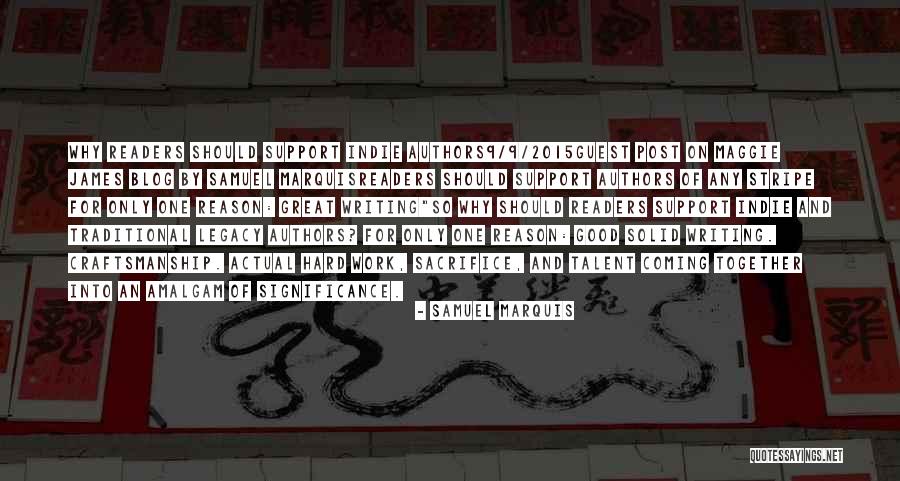 WHY READERS SHOULD SUPPORT INDIE AUTHORS9/9/2015GUEST POST ON MAGGIE
JAMES BLOG BY SAMUEL MARQUISREADERS SHOULD SUPPORT AUTHORS OF ANY STRIPE
FOR ONLY ONE REASON: GREAT WRITING"SO WHY SHOULD READERS SUPPORT INDIE AND
TRADITIONAL LEGACY AUTHORS? FOR ONLY ONE REASON: GOOD SOLID WRITING.
CRAFTSMANSHIP. ACTUAL HARD WORK, SACRIFICE, AND TALENT COMING TOGETHER
INTO AN AMALGAM OF SIGNIFICANCE.
- SAMUEL MARQUIS
QUOTESSAYINGS.NET